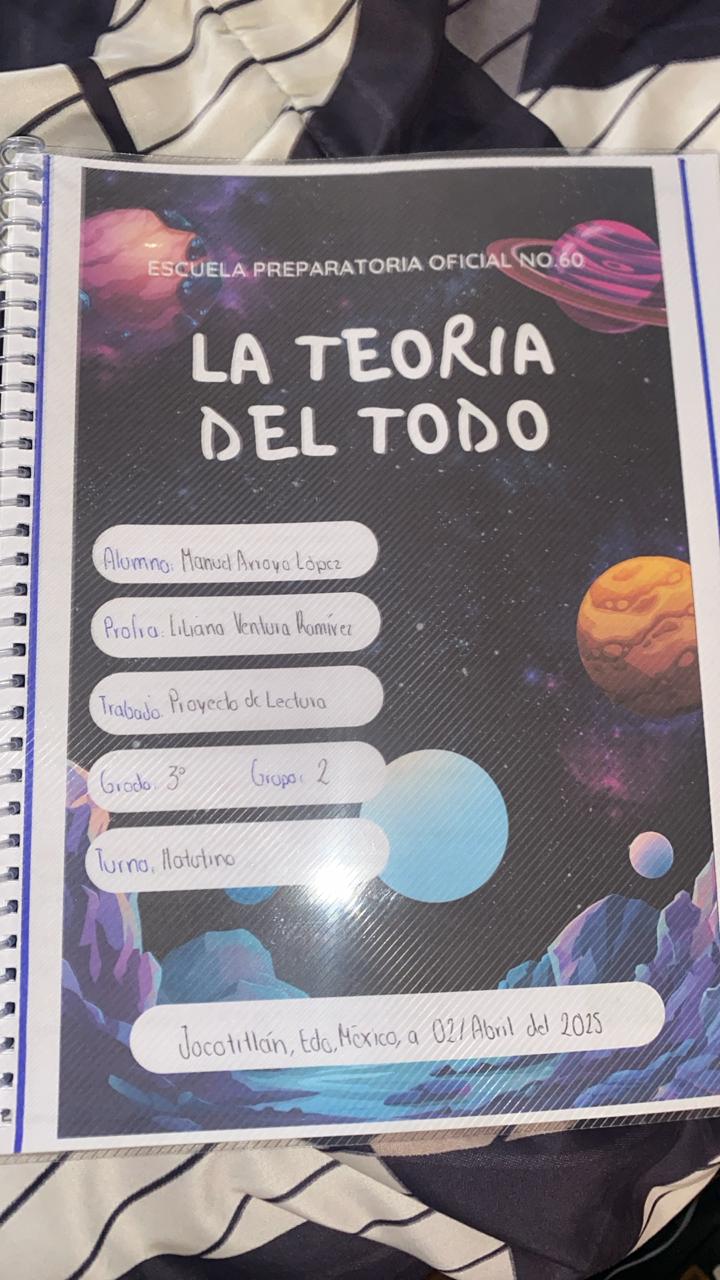 ESCUELA PREPARATORIA OFICIAL NO.60
LA TEORIA
DEL TODO
Alumno: Manuel Arroyo López
Profra: Liliana Ventura Ramírez
Trabajo: Proyecto de Lectura
Grado: 3° Grupo: 2
Turno: Matutino
Jocotitlán, Edo, México, a 02/Abril del 2025